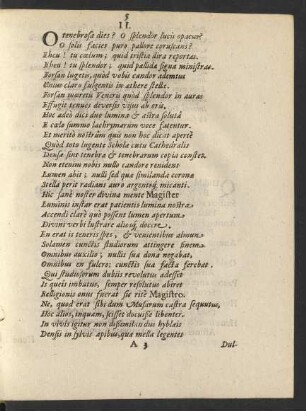 5
II.
O tenebrosa dies? O splendor lucis opacus?
O solis facies puro pallore coruscans?
Eheu! tu cœlum; quid tristia dira reportas.
Eheu! tu splendor; quid pallida signa ministras.
Forsan lugetis, quòd vobis candor ademtus
Unius claro fulgentis in æthere stellæ.
Forsan mœretis Veneris quid splendor in auras
Effugit tenues deversis vijus ab oris,
Hoc adeò dicit duo lumina & astra soluta
E cœlo summo lachrymarum voce fatentur.
Et meritò nostrûm quis non hoc dicat apertè
Quòd toto ingente Schola cuiu Cathedralis
Densæ sint tenebræ & tenebrarum copia constet.
Non etenim nobis nullo candore residens
Lumen abit; nulli sed qua similanda corona
Stella perit radians auro argentoq́ micanti.
Hic sanè noster divina mente Magister
Luminis instar erat patientis lumina nostra
Accendi clarè quò possent lumen apertum
Divini verbi lustrare aliosq́ docere.
En erat is teneris spes, & venientibus alnum
Solamen cunctis studiorum attingere finem.
Omnibus auxilio; nulli sua dona negabat,
Omnibus en fulcro; cunctis sua facta ferebat.
Qui studiosorum dubiis revolutus adesset
Is queis imbutus, semper resolutus abiret
Religionis onus fuerat sic ritè Magistro.
Ne, quod erat sibi dum Musarum castra sequutus,
Hoc alios, inquam, scisset docuisse libenter.
In vivis igitur non dissimilis des hyblais
Densis in sylvis apibus, qua mella legentes
A 3
Dul-